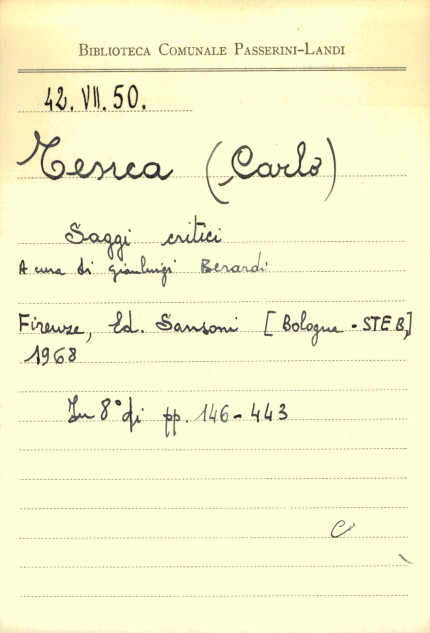 BIBLIOTECA COMUNALE PASSERINI-LANDI
42. VII. 50.
Tenca (Carlo)
Saggi critici
A cura di Gianluigi Berardi
Firenze, Ed. Sansoni [Bologna - STEB,]
1968
In 8° di pp. 146-443
C